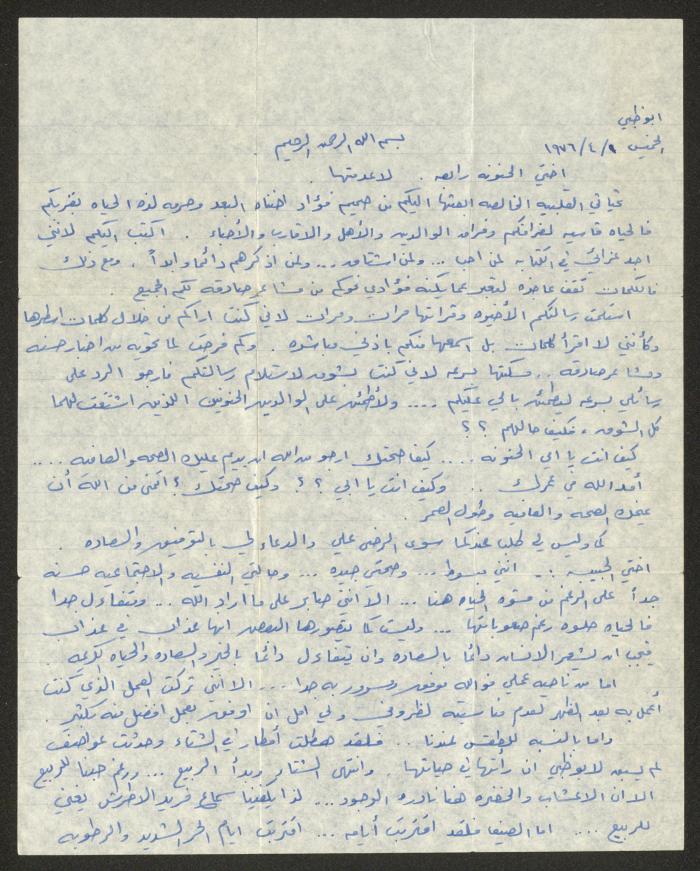 ابوظبي
الخميس ٨/٤/١٩٧٦
بسم الله الرحمن الرحيم
اختي الحنونه رائعه . لا عدمتها .
تحياتي القلبية الخالصه ابعثها اليكم من صميم فؤاد اضناه البعد وحرمه لذة الحياه بقربكم
فالحياه قاسيه لفراقكم وفراق الوالدين والأهل والاقارب والأحباء . اكتب اليكم لانني
اجد عزائي في الكتابه لمن احب ... ولمن اشتاق ... ولمن اذكرهم دائما وابداً . ومع ذلك
فالكلمات تقف عاجزه لتعبر عما يكنه فؤادي نحوكم من مشاعر صادقه لكم الجميع .
استلمت رسالتكم الأخيره وقرأتها مرات ومرات لاني كنت اراكم من خلال كلمات اسطرها
وكأنني لا اقرأ كلمات بل اسمعها منكم باذني مباشره . وكم فرحت لما تحويه من اخبار حسنه
ومشاعر صادقه .. بسرعه لاني كنت بشوق لاستلام رسالتكم فارجو الرد على
رسائلي بسرعه ليطمئن بالي عليكم .... ولأطمئن على الوالدين الحنونين اللذين اشتقت لهما
كل الشوق ، فكيف حالهم ؟؟
كيف انت يا امي الحنونه .... كيف صحتك ارجو من الله ان يديم عليك الصحه والعافيه ....
أمد الله في عمرك ... وكيف انت يا ابي ؟؟ وكيف صحتك ؟ اتمنى من الله أن
يمنحك الصحه والعافيه وطول العمر .
وليس لي طلب عندكما سوى الرضى علي والدعاء لي بالتوفيق والسعاده .
اختي الحبيبه : .. انني مبسوط ... وصحتي جيده ... وحالتي النفسيه والاجتماعيه حسنه
جداً على الرغم من قسوة الحياه هنا ... الا انني صابر على ما اراد الله ... ومتفاءل جدا
فالحياه حلوه رغم صعوباتها ... وليست كما يتصورها البعض انها عذاب في عذاب
فيجب ان يشعر الانسان دائما بالسعاده وان يتفاءل دائما بالخير والسعاده والحياه الكريمه .
اما من ناحية عملي فوالله موفق ومسرور به جدا ... الا انني تركت العمل الذي كنت
أعمل به بعد الظهر لعدم مناسبته لظروفي ولي امل ان اوفق بعمل افضل منه بكثير .
واما بالنسبه للطقس عندنا ... فلقد هطلت أمطار في الشتاء وحدثت عواصف
لم يسبق لابوظبي ان رأتها في حياتها . وانتهى الشتاء وبدأ الربيع ... ورغم حبنا للربيع
الا ان الاعشاب والخضره هنا نادرة الوجود ... لذا يكفينا سماع فريد الاطرش يغني
للربيع .... اما الصيف فلقد اقتربت أيامه ... اقتربت ايام الحر الشديد والرطوبه